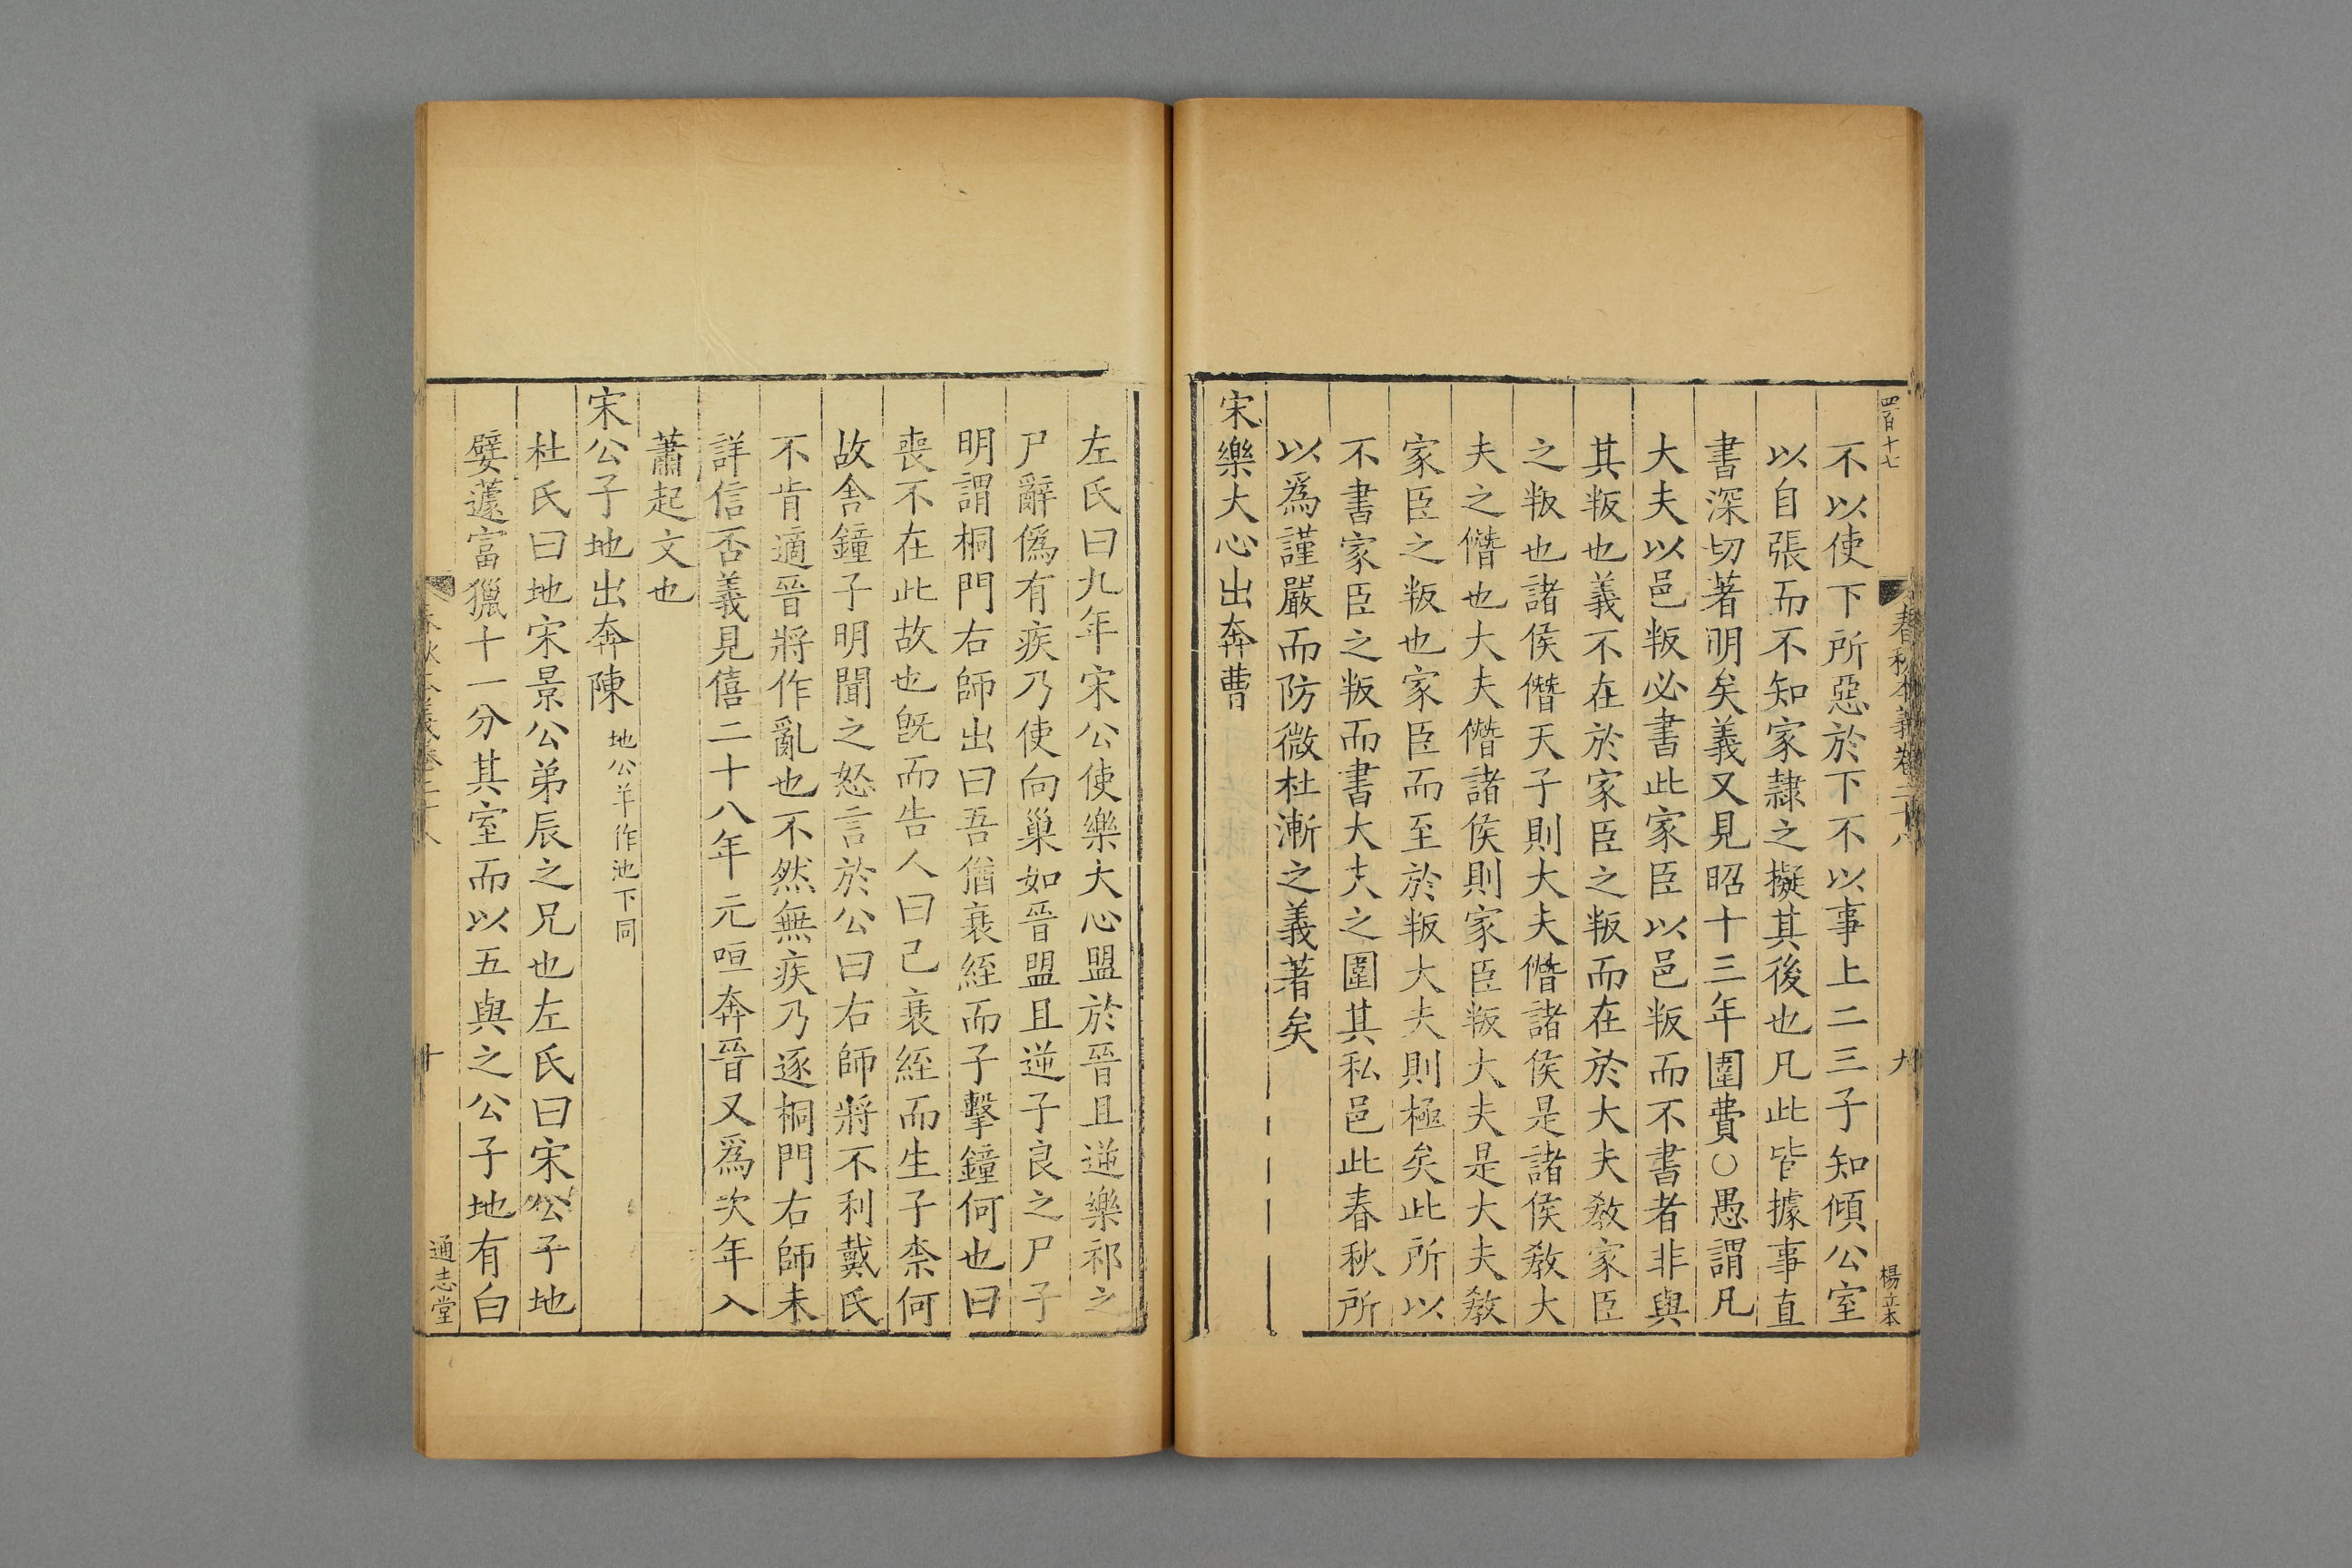 四百十七
春秋本義卷二十八
九
楊立本
不以使下所惡於下不以事上二三子知傾公室
以自張而不知家隷之擬其後也凡此皆據事直
書深切著明矣義又見昭十三年圍費○愚謂凡
大夫以邑叛必書此家臣以邑叛而不書者非與
其叛也義不在於家臣之叛而在於大夫敎家臣
之叛也諸侯僭天子則大夫僭諸侯是諸侯敎大
夫之僭也大夫僭諸侯則家臣叛大夫是大夫敎
家臣之叛也家臣而至於叛大夫則極矣此所以
不書家臣之叛而書大夫之圍其私邑此春秋所
以爲謹嚴而防微杜漸之義著矣
宋樂大心出奔曹
左氏曰九年宋公使樂大心盟於晉且逆樂祁之
尸辭僞有疾乃使向巢如晉盟且逆子良之尸子
明謂桐門右師出曰吾猶衰絰而子擊鐘何也曰
喪不在此故也旣而告人曰己衰絰而生子柰何
故舎鐘子明聞之怒言於公曰右師將不利戴氏
不肯適晉將作亂也不然無疾乃逐桐門右師未
詳信否義見僖二十八年元咺奔晉又爲次年入
蕭起文也
宋公子地出奔陳地公羊作池下同
杜氏曰地宋景公弟辰之兄也左氏曰宋公子地
嬖蘧富獵十一分其室而以五與之公子地有白
十
通志堂